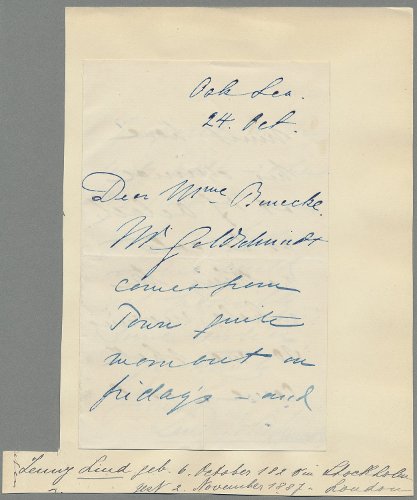 Oak Lea.
24. Oct.
Dear Mme Benecke.
Mr Goldschmidt
comes from
Town quite
wornout on
friday's – and
Jenny Lind geb. 6. October 182 in Stockholm
gest 2. November 1887. London